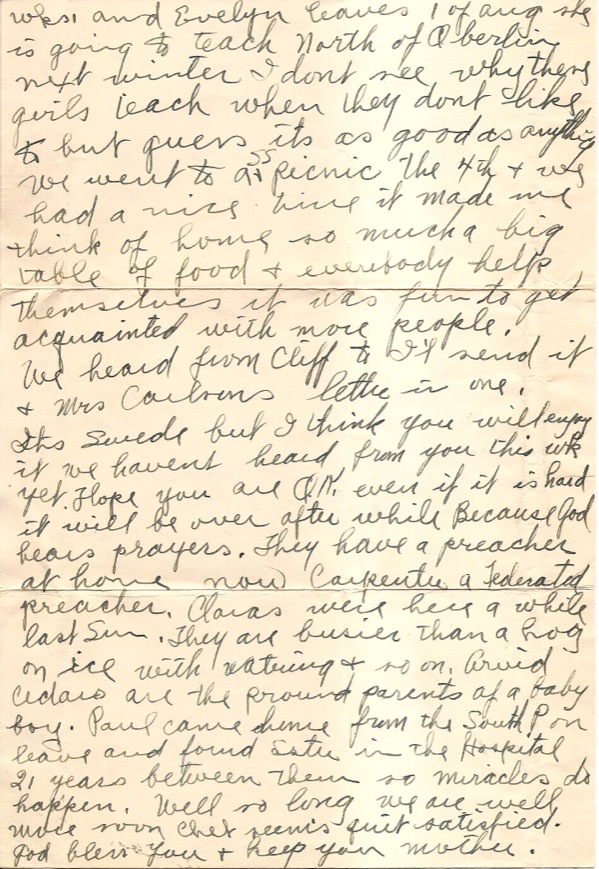 wks. and Evelyn leaves 1 of aug she
is going to teach North of Oberlin
next winter I dont see why these
girls teach when they dont like
to but guess its as good as anything
We went to a SS picnic the 4th + we
had a nice time it made me
think of home so much a big
table of food + everybody helps
themselves it was fun to get
acquainted with more people.
We heard from Cliff to I'l send it
+ Mrs Carlsons letter in one.
Its Swede but I think you will enjoy
it we havent heard from you this wk
yet Hope you are O.K. even if it is hard
it will be over after while Because God
hears prayers. They have a preacher
at home now Carpenter a Federated
preacher. Claras were here a while
last Sun. They are busier than a hog
on ice with watering + so on. Arvid
Cedars are the pround parents of a baby
boy. Paul came home from the South P on
leave and found in the Hospital
21 years between them so miracles do
happen. Well so long we are well
more soon Chet seems quit satisfied.
God bless you + keep you mother.